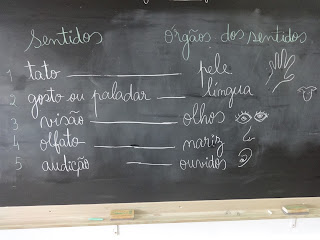 sentidos órgãos dos sentidos
1 tato pele
2 gosto ou paladar língua
3 visão olhos
4 olfato nariz
5 audição ouvidos